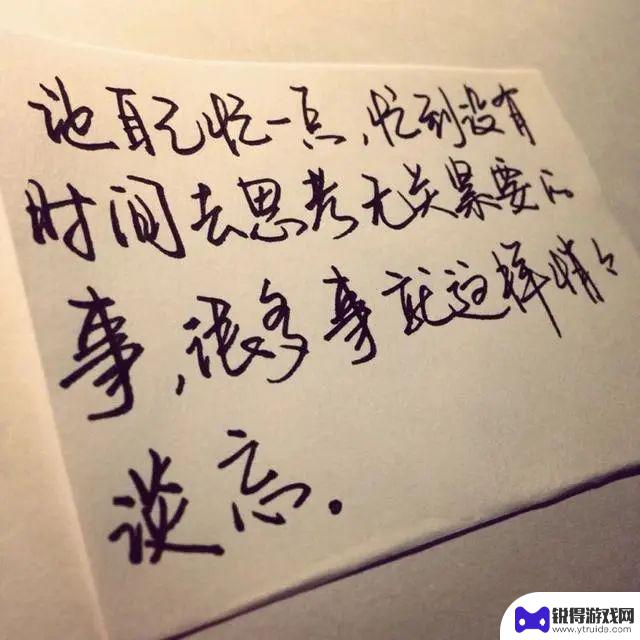 让自己忙一点,忙到没有
时间去思考无关紧要的
事,很多事就这样悄々
淡忘.
锐得游戏网
www.ytruida.com